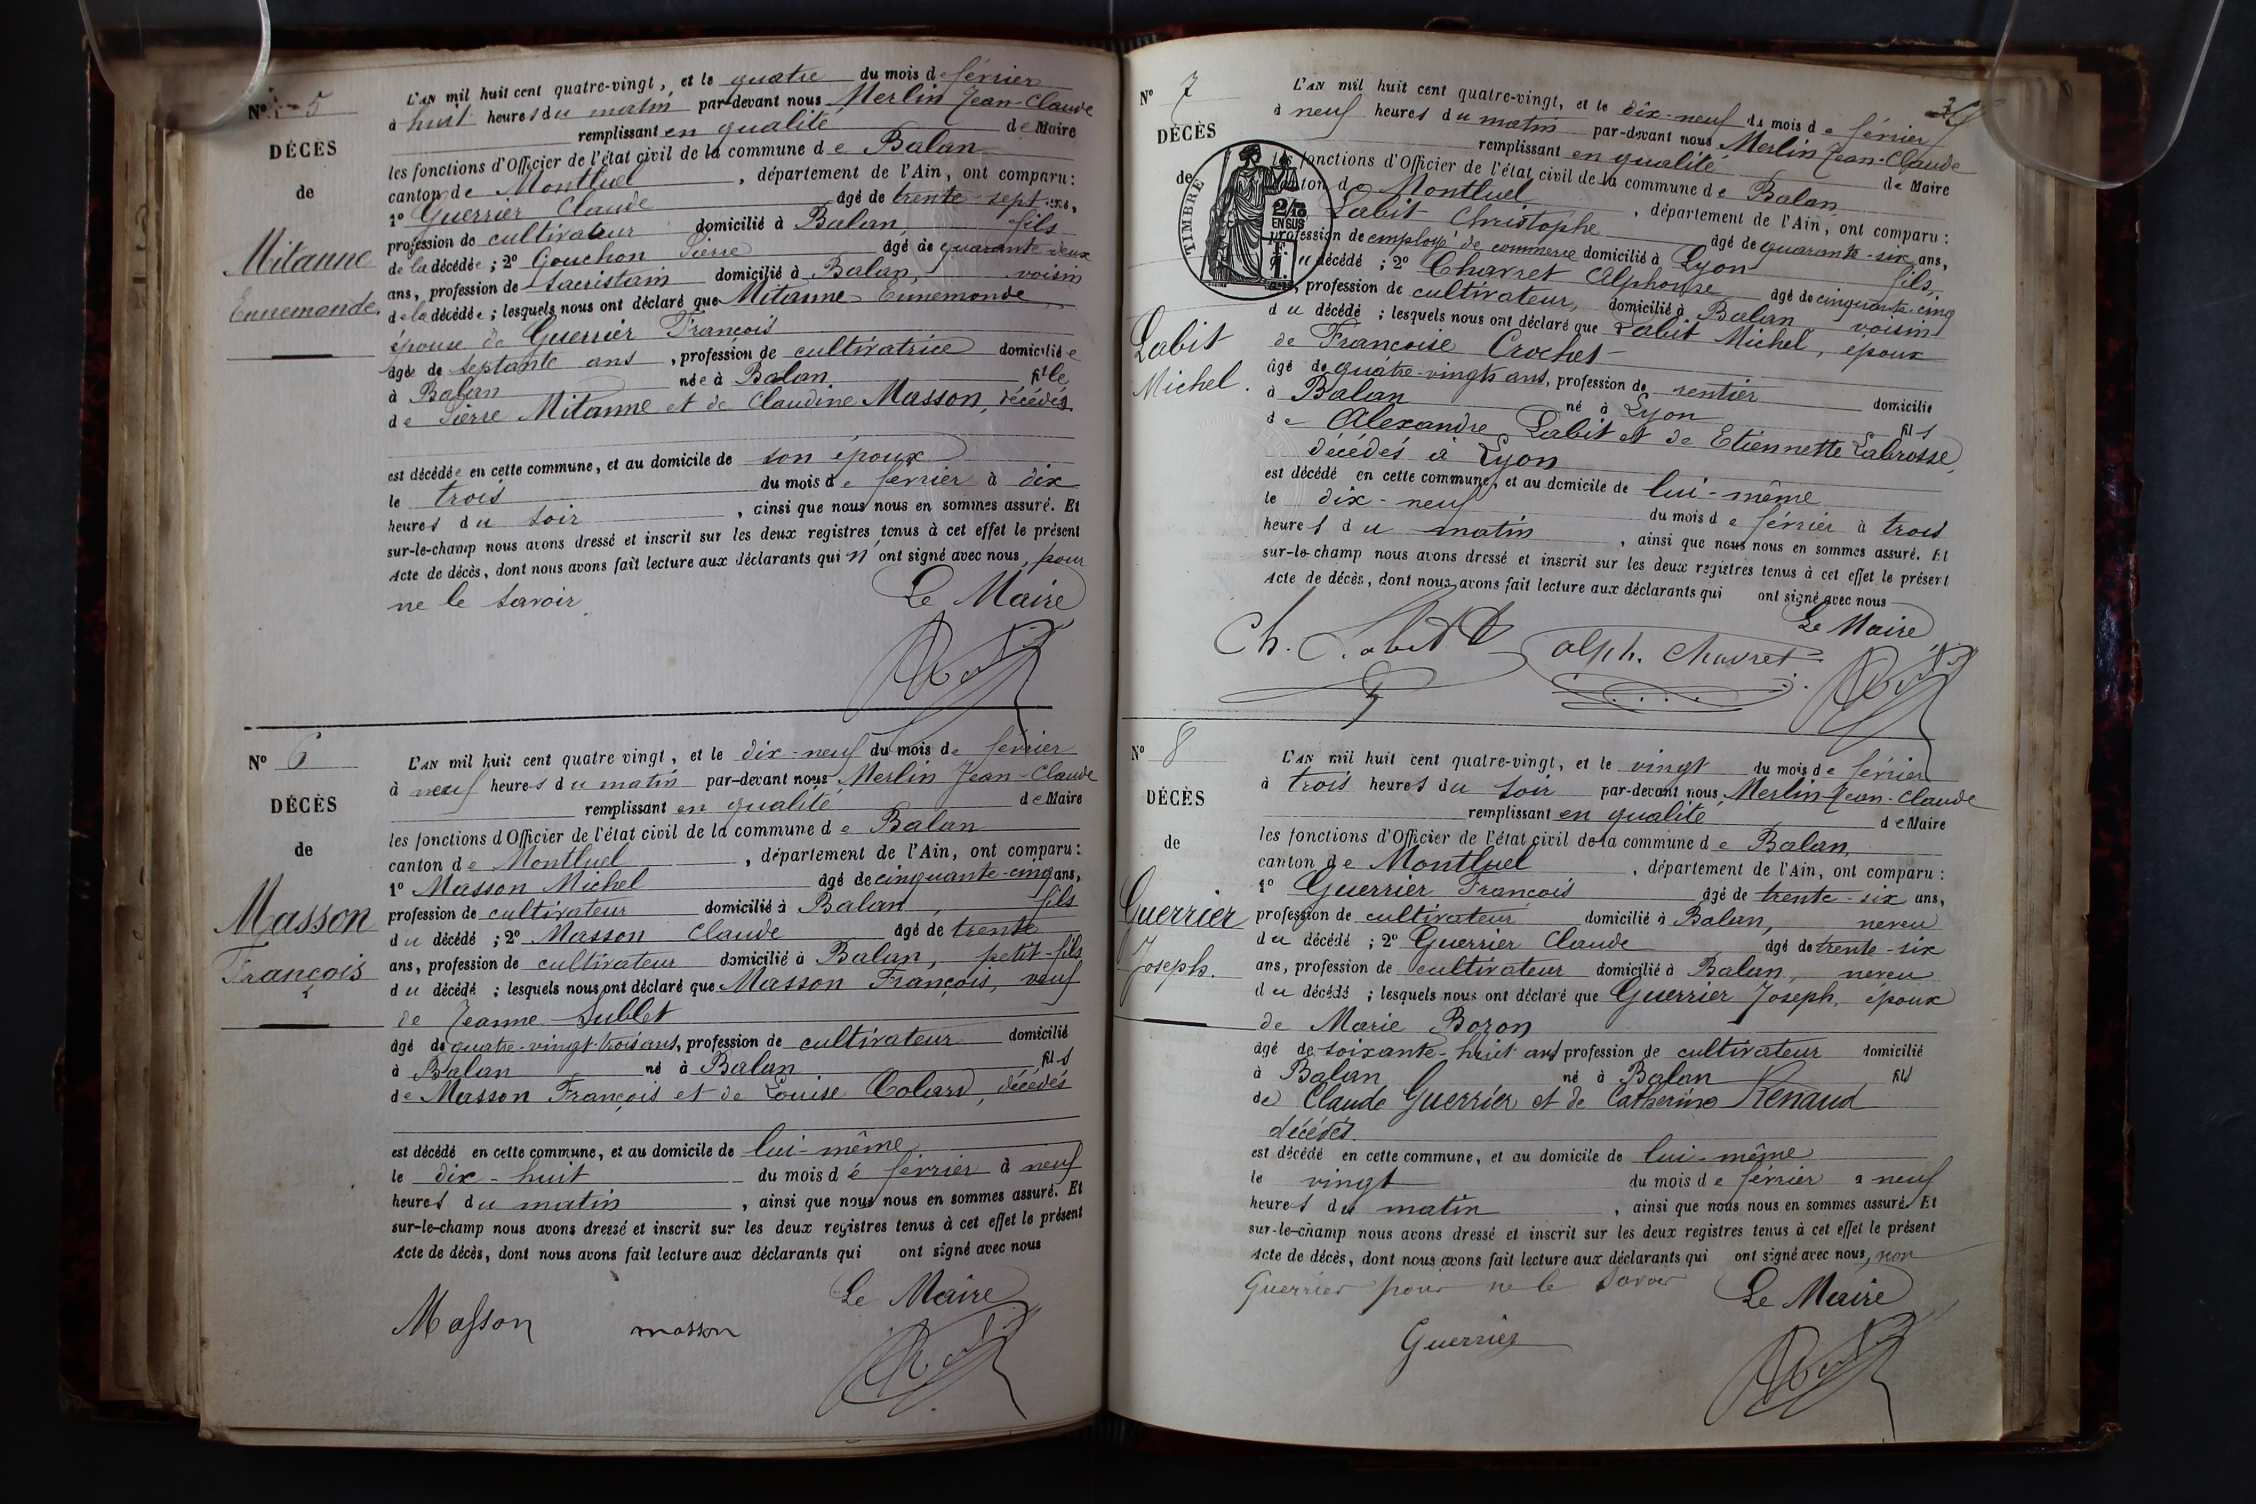 N° 5
DÉCÈS
de
Mitanne
Ennemonde.
L'AN mil huit cent quatre-vingt, et le quatre du mois de février
à huit heures du matin par-devant nous Merlin Jean-Claude
remplissant en qualité de Maire
les fonctions d'Officier de l'état civil de la commune de Balan
canton de Montluel, département de l'Ain, ont comparu:
1° Guerrier Claude âgé de trente-sept ans,
profession de cultivateur domicilié à Balan, fils
de la décédée; 2° Gouchon Pierre âgé de quarante-deux
ans, profession de sacristain domicilié à Balan, voisin
de la décédée; lesquels nous ont déclaré que Mitanne Ennemonde
épouse de Guerrier François
âgée de septante ans, profession de cultivatrice domiciliée
à Balan née à Balan fille
de Pierre Mitanne et de Claudine Masson, décédés
est décédée en cette commune, et au domicile de son époux
le trois du mois de février à dix
heures du soir, ainsi que nous nous en sommes assuré. Et
sur-le-champ nous avons dressé et inscrit sur les deux registres tenus à cet effet le présent
Acte de décès, dont nous avons fait lecture aux déclarants qui n'ont signé avec nous, pour
ne le savoir.
Le Maire
N° 6
DÉCÈS
de
Masson
François
L'AN mil huit cent quatre vingt, et le dix-neuf du mois de février
à neuf heures du matin par-devant nous Merlin Jean-Claude
remplissant en qualité de Maire
les fonctions d'Officier de l'état civil de la commune de Balan
canton de Montluel, département de l'Ain, ont comparu:
1° Masson Michel âgé de cinquante-cinq ans,
profession de cultivateur domicilié à Balan, fils
du décédé; 2° Masson Claude âgé de trente
ans, profession de cultivateur domicilié à Balan, petit-fils
du décédé; lesquels nous ont déclaré que Masson François, veuf
de Jeanne Sublet
âgé de quatre-vingt-trois ans, profession de cultivateur domicilié
à Balan né à Balan fils
de Masson François et de Louise Colard, décédés
est décédé en cette commune, et au domicile de lui-même
le dix-huit du mois de février à neuf
heures du matin, ainsi que nous nous en sommes assuré. Et
sur-le-champ nous avons dressé et inscrit sur les deux registres tenus à cet effet le présent
Acte de décès, dont nous avons fait lecture aux déclarants qui ont signé avec nous
Le Maire
Masson masson
N° 7
DÉCÈS
de
TIMBRE
2/10
EN SUS
Labit
Michel.
L'AN mil huit cent quatre-vingt, et le dix-neuf du mois de février
à neuf heures du matin par-devant nous Merlin Jean-Claude
remplissant en qualité de Maire
les fonctions d'Officier de l'état civil de la commune de Balan
canton de Montluel, département de l'Ain, ont comparu:
Labit Christophe âgé de quarante-six ans,
profession de employé de commerce domicilié à Lyon fils,
du décédé; 2° Chavret Alphonse âgé de cinquante-cinq
ans, profession de cultivateur, domicilié à Balan voisin
du décédé; lesquels nous ont déclaré que Labit Michel, époux
de Françoise Crochet
âgé de quatre-vingts ans, profession de rentier domicilié
à Balan né à Lyon fils
de Alexandre Labit et de Etiennette Labrosse,
décédés à Lyon
est décédé en cette commune, et au domicile de lui-même
le dix-neuf du mois de février à trois
heures du matin, ainsi que nous nous en sommes assuré. Et
sur-le-champ nous avons dressé et inscrit sur les deux registres tenus à cet effet le présent
Acte de décès, dont nous avons fait lecture aux déclarants qui ont signé avec nous
Le Maire
Ch. Labit alph. Chavret
N° 8
DÉCÈS
de
Guerrier
Joseph.
L'AN mil huit cent quatre-vingt, et le vingt du mois de février
à trois heures du soir par-devant nous Merlin Jean-Claude
remplissant en qualité de Maire
les fonctions d'Officier de l'état civil de la commune de Balan,
canton de Montluel, département de l'Ain, ont comparu:
1° Guerrier François âgé de trente-six ans,
profession de cultivateur domicilié à Balan, neveu
du décédé; 2° Guerrier Claude âgé de trente-six
ans, profession de cultivateur domicilié à Balan, neveu
du décédé; lesquels nous ont déclaré que Guerrier Joseph, époux
de Marie Bozon
âgé de soixante-huit ans profession de cultivateur domicilié
à Balan né à Balan fils
de Claude Guerrier et de Catherine Renaud
décédés.
est décédé en cette commune, et au domicile de lui-même
le vingt du mois de février a neuf
heures du matin, ainsi que nous nous en sommes assuré. Et
sur-le-champ nous avons dressé et inscrit sur les deux registres tenus à cet effet le présent
Acte de décès, dont nous avons fait lecture aux déclarants qui ont signé avec nous, non
Guerrier pour ne le savoir
Le Maire
Guerrier